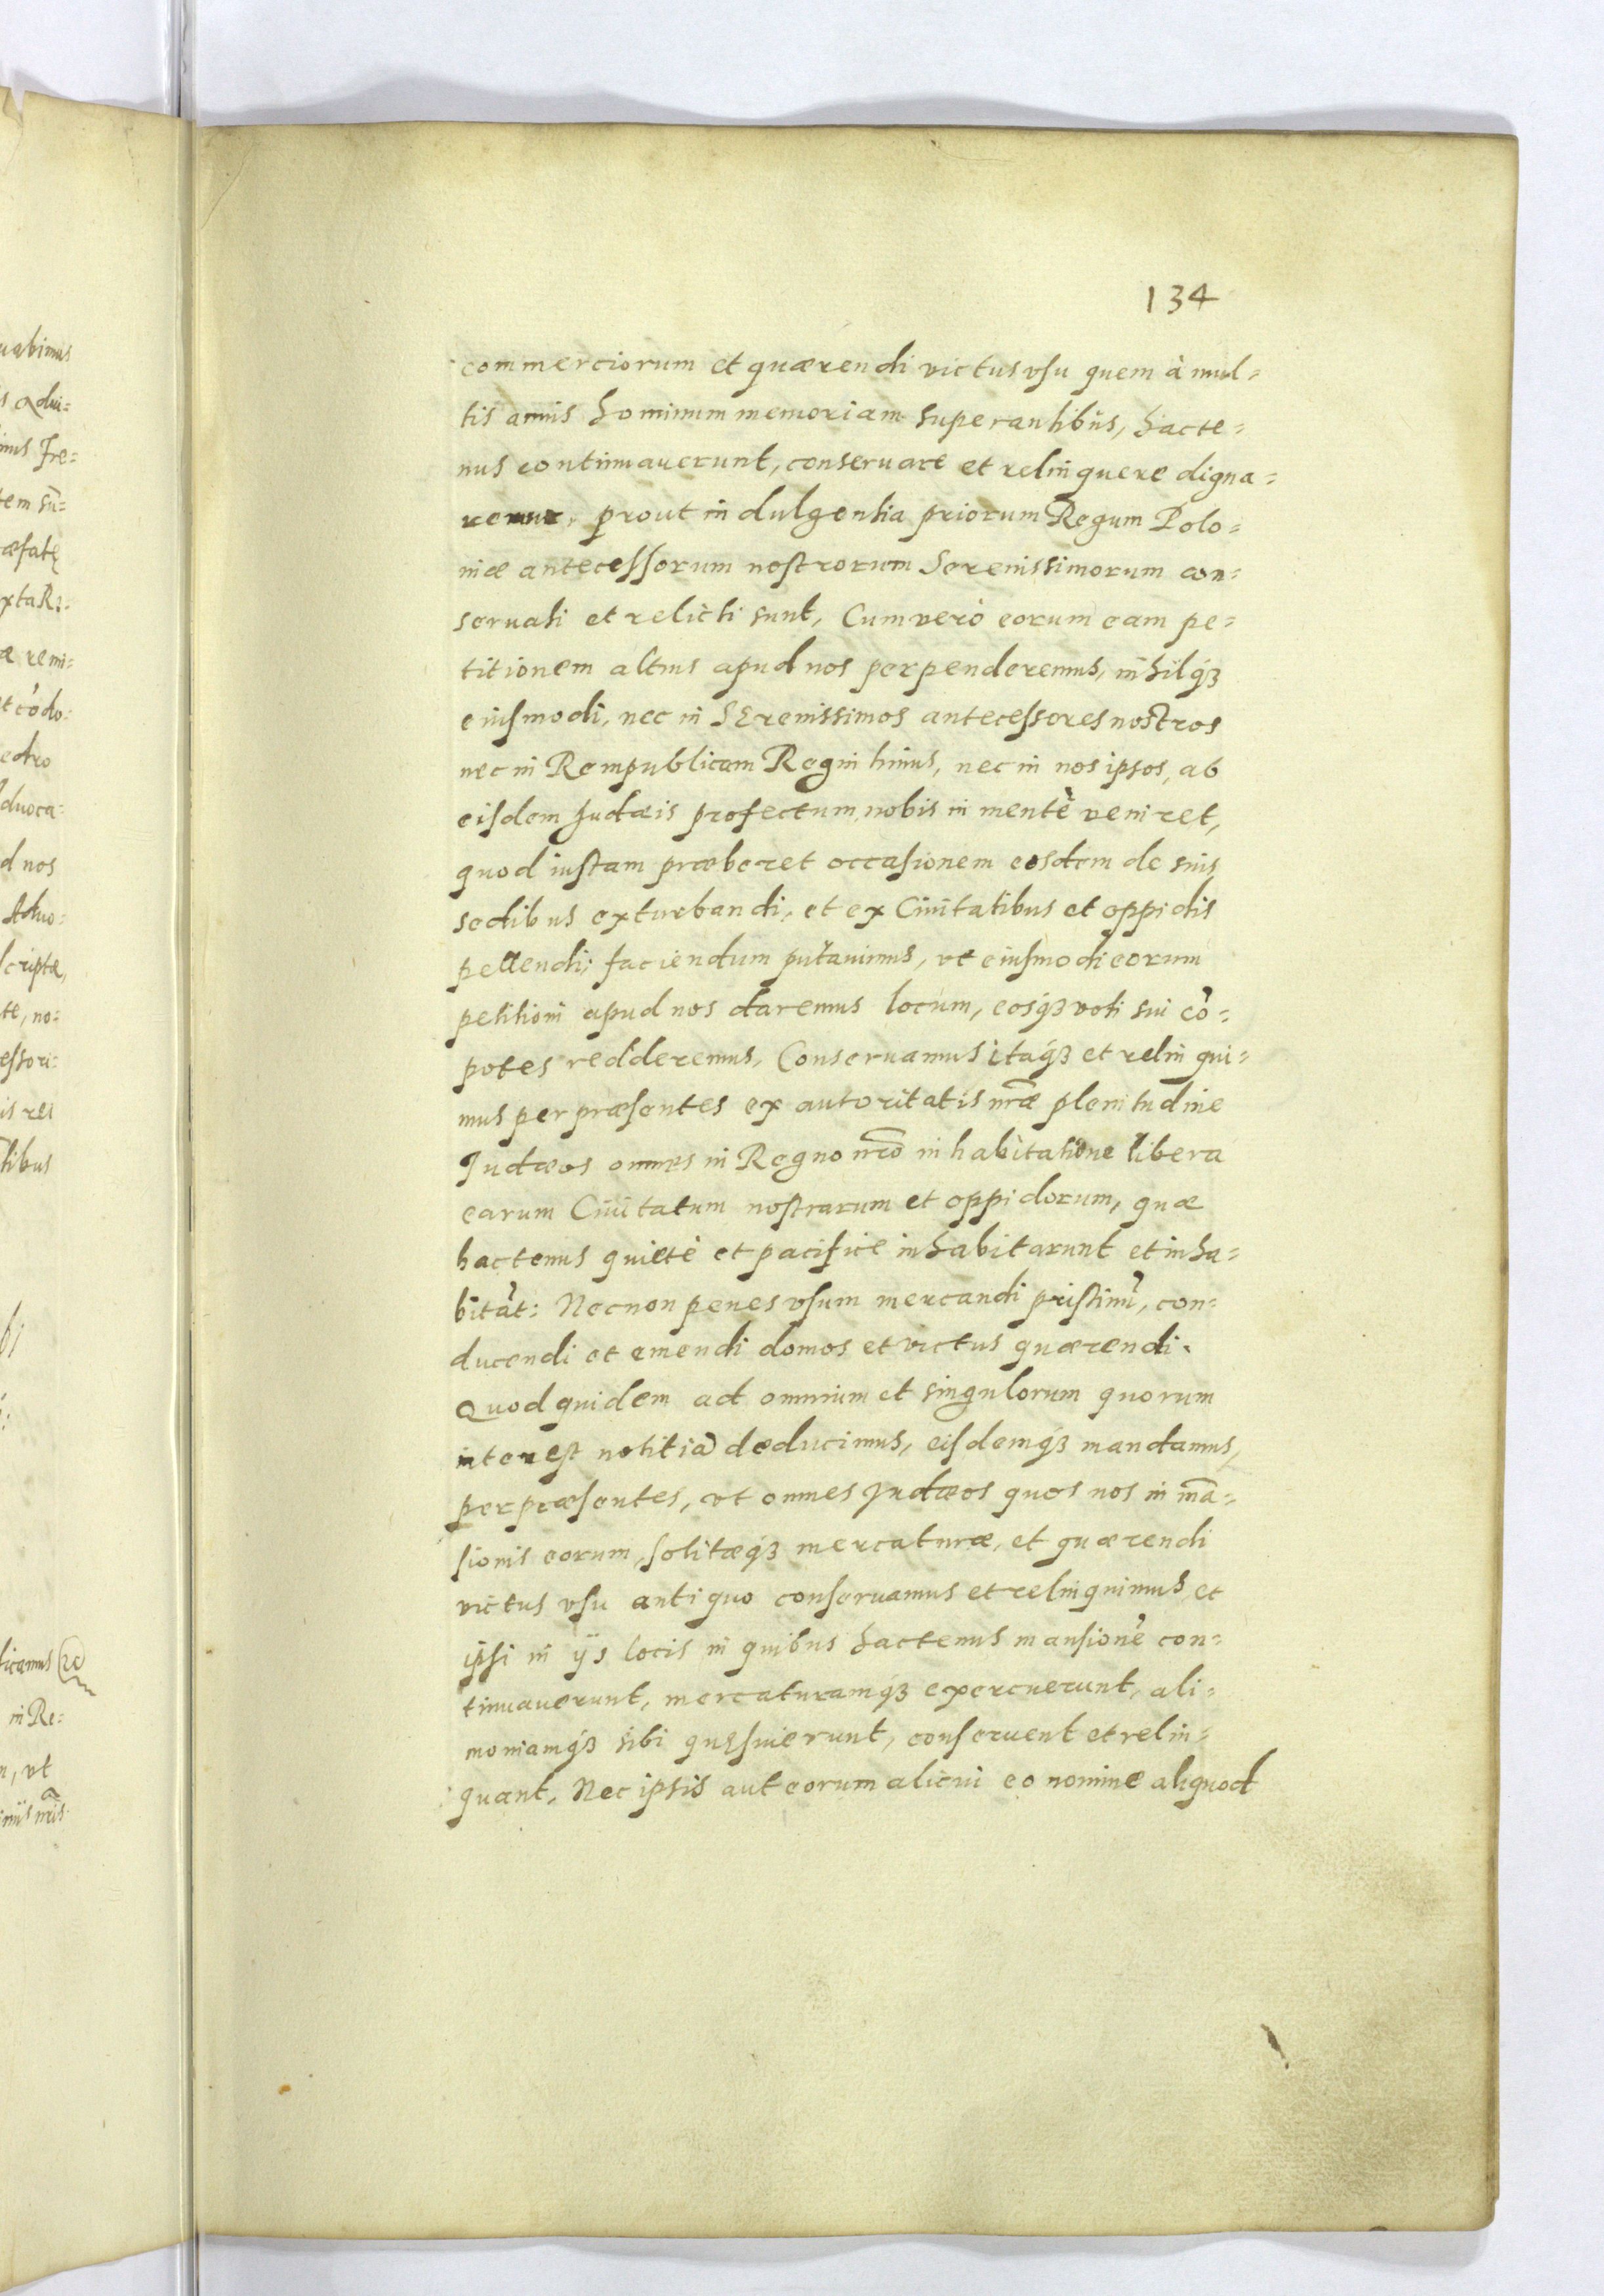 134
commerciorum et quærendi victus vsu quem à mul=
tis annis hominum memoriam superantibus, hacte=
nus continuauerunt, conseruare et relinquere digna=
remur, prout indulgentia priorum Regum Polo=
niæ antecessorum nostrorum Serenissimorum con=
seruati et relicti sunt, Cum verò eorum eam pe=
titionem altius apud nos perpenderemus, nihilqʒ
eiusmodi, nec in SErenissimos antecessores nostros
nec in Rempublicam Regni huius, nec in nos ipsos, ab
eisdem Judæis profectum, nobis in mentē veniret,
quod iustam præberet occasionem eosdem de suis
sedibus exturbandi, et ex Ciuitatibus et oppidis
pellendi; faciendum putauimus, vt eiusmodi eorum
petitioni apud nos daremus locum, eosqʒ voti sui cō=
potes redderemus, Conseruamus itaqʒ et relinqui=
mus per præsentes ex autoritatis nr̃æ plenitudine
Judæos omnes in Regno nr̃o inhabitatione libera
earum Ciuitatum nostrarum et oppidorum, quæ
hactenus quietè et pacifice inhabitarunt et inha=
bitāt: Necnon penes vsum mercandi pristinū, con=
ducendi et emendi domos et victus quærendi.
Quod quidem ad omnium et singulorum quorum
interest notitiā deducimus, eisdemqʒ mandamus,
per præsentes, vt omnes Judæos quos nos in mā=
sionis eorum, solitæqʒ mercaturæ, et quærendi
victus vsu antiquo conseruamus et relinquimus, et
ipsi in ijs locis in quibus hactenus mansionē con=
tinuauerunt, mercaturamqʒ exercuerunt, ali=
moniamqʒ sibi quęsiuerunt, conseruent et relin=
quant, Nec ipsis aut eorum alicui eo nomine aliquod